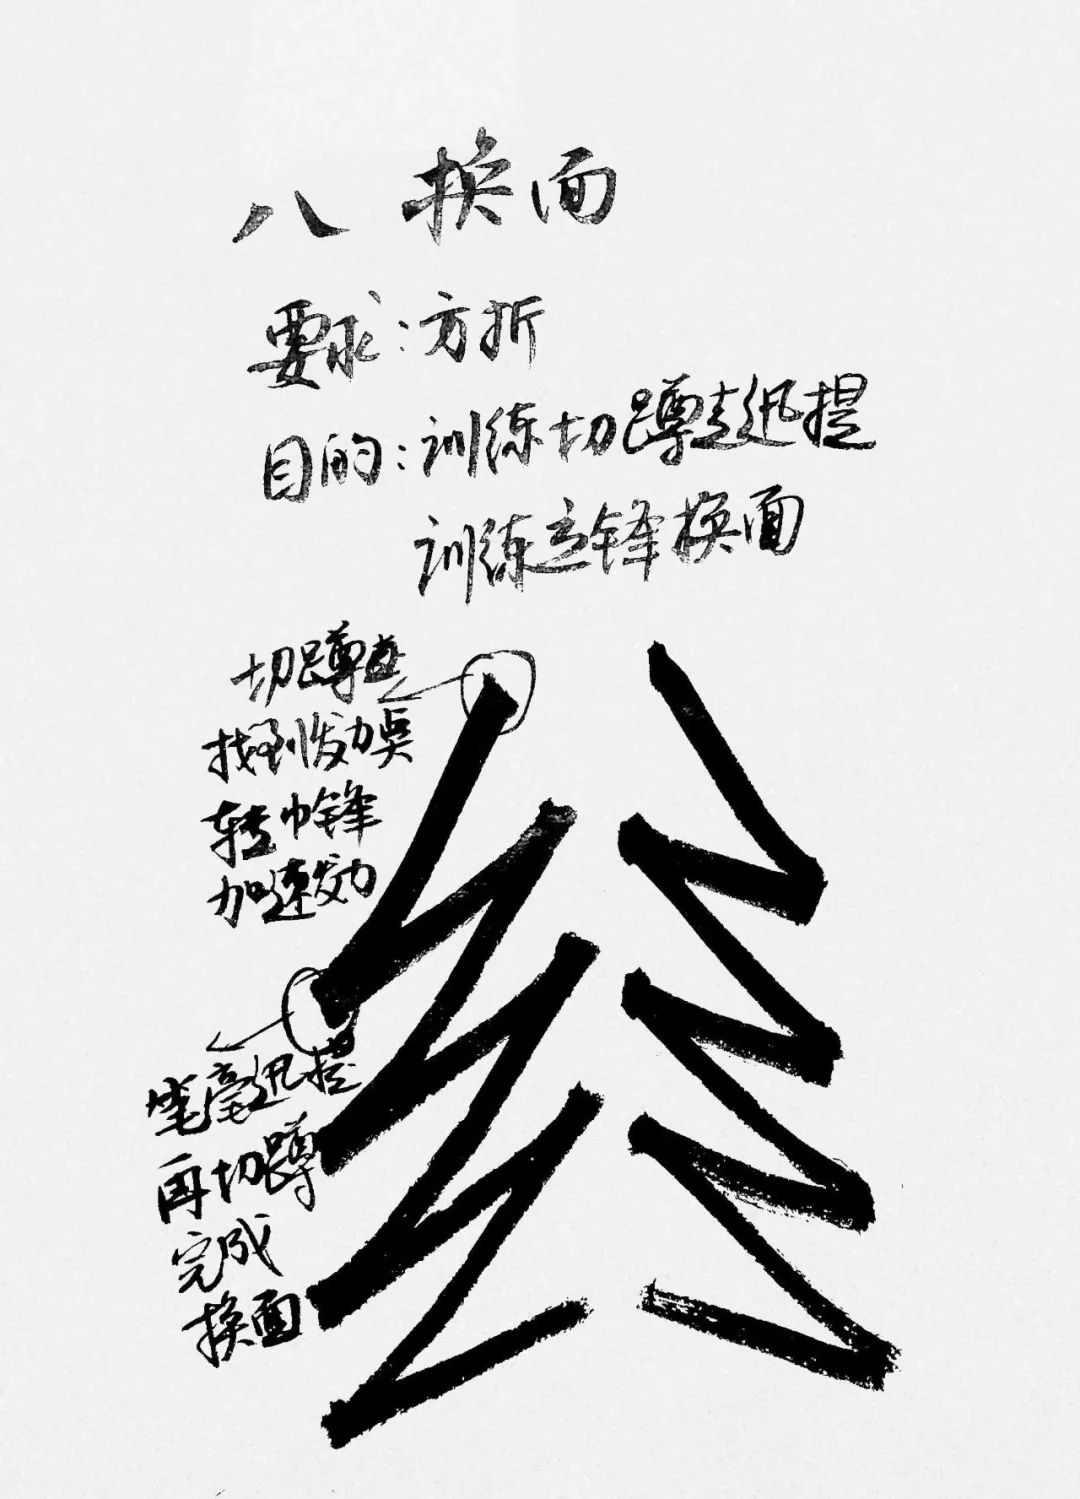 八 换面
要求：方折
目的：训练切蹲起迅提
训练立锋换面
切蹲直
找到发力点
转中锋
加速发力
笔毫迅提
再切蹲
完成
换面